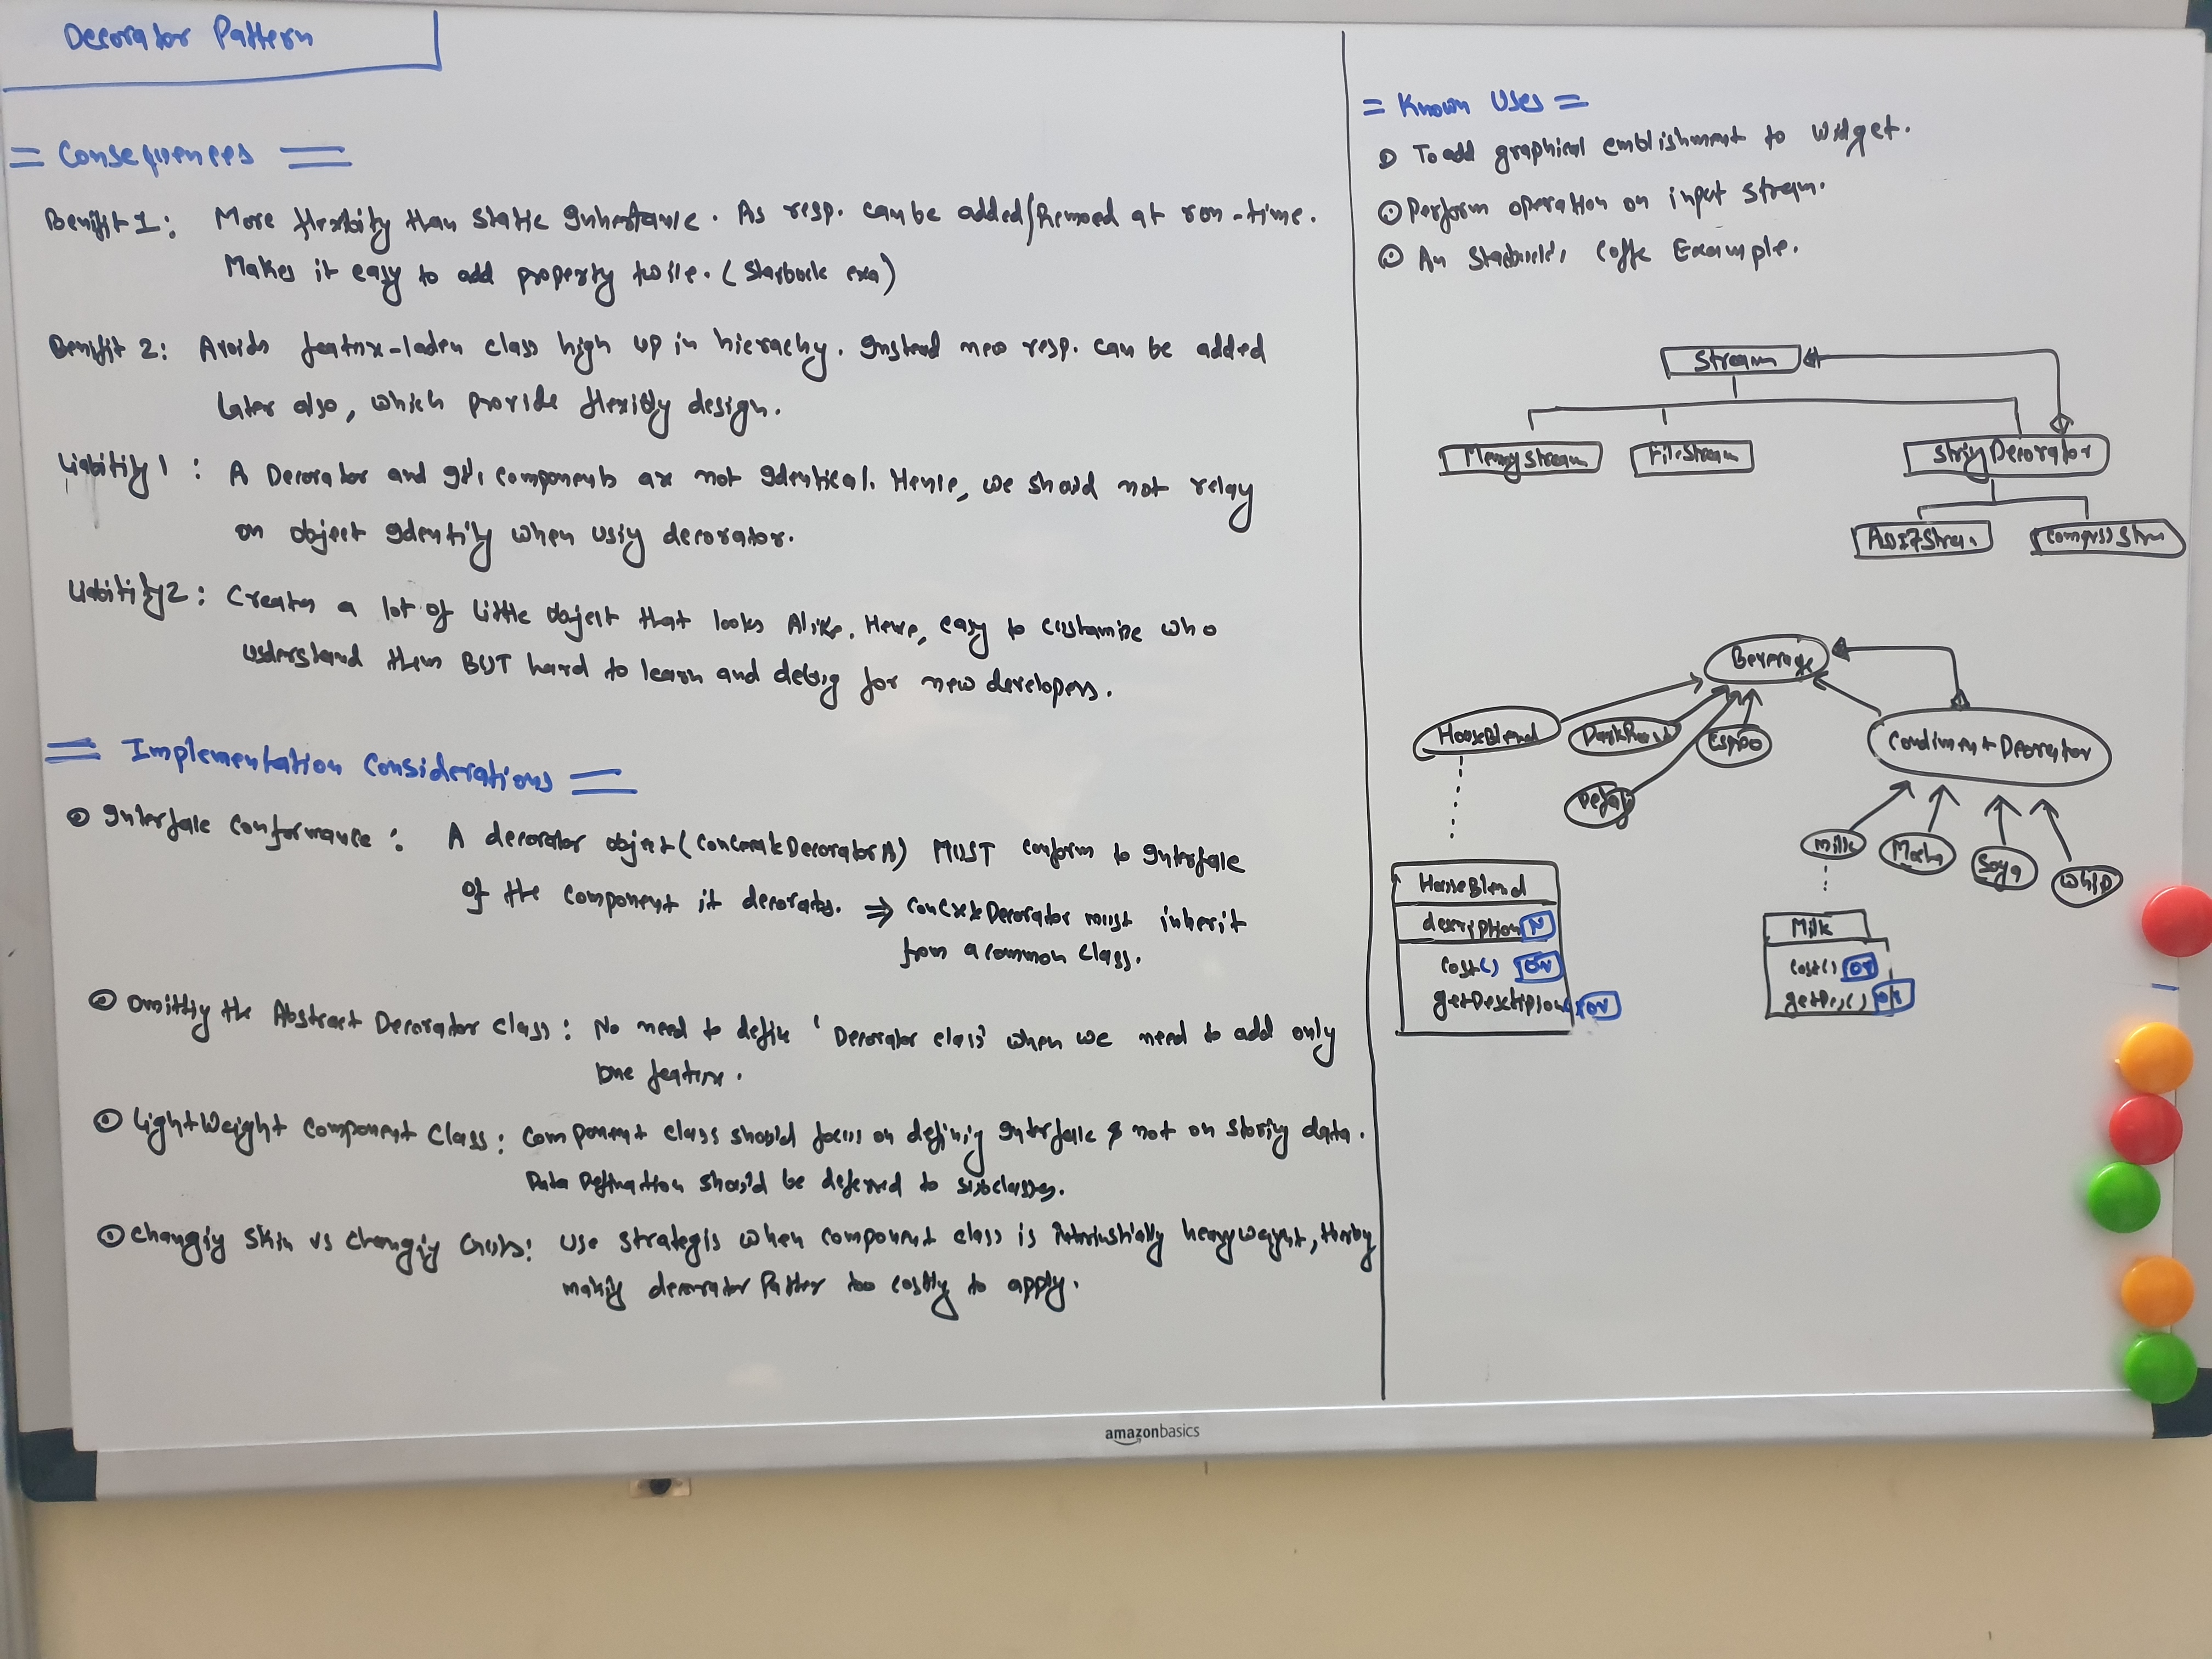 Decorator Pattern
= Consequences =
Benifit 1: More flexibity than static Inheritance. As resp. can be added/Removed at run-time.
Makes it easy to add property twice. (Starbuck exa)
Benifit 2: Avoids feature-laden class high up in hierachy. Instead new resp. can be added
later also, which provide flexibly design.
Liability 1: A Decorator and It's components are not Identical. Hence, we should not relay
on object Identity when using decorator.
Liability 2: Creates a lot of little object that looks Alike. Hence, easy to customize who
understand them BUT hard to learn and debug for new developers.
= Implementation Considerations =
Interface conformance: A decorator object (ConcreteDecoratorA) MUST conform to Interface
of the component it decorates. ⇒ ConcreteDecorator must inherit
from a common class.
Omitting the Abstract Decorator class: No need to define 'Decorator class' when we need to add only
one feature.
LightWeight Component Class: Component class should focus on defining Interface & not on storing data.
Data Defination should be deferred to subclasses.
Changing Skin vs Changing Guts: Use strategis when component class is intrinstially heavyweight, thereby
making decorator Patter too costly to apply.
= Known Uses =
To add graphical emblishment to widget.
Perform operation on input stream.
An Starbuck's Coffe Example.
Stream
MemoryStream FileStream
Decorator
Beverage
HouseBlend DarkRoast
CondimentDecorator
Decaf
Milk Mocha Soya Whip
HouseBlend
description N
cost() OV
getDescription() OV
Milk
cost() OV
getDes() OV
amazonbasics